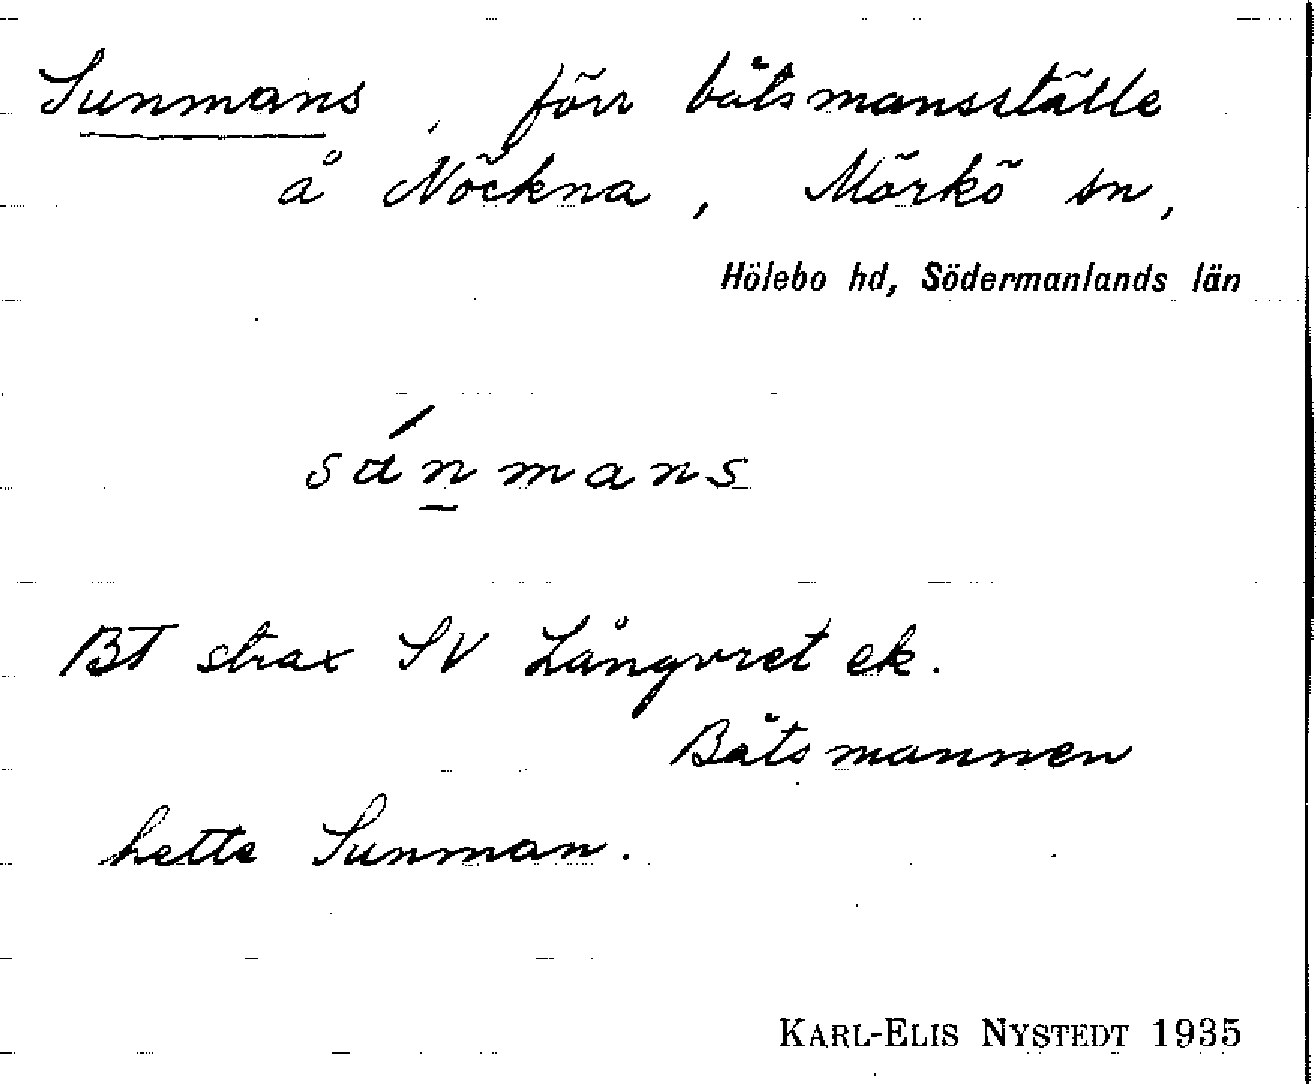 Sunmans, förr båtsmansställe
å Nöckna, Mörkö sn,
Hölebo hd, Södermanlands län
súnmans
BT strax SV Långvret ek.
Båtsmannen
hette Sunman.
KARL-ELIS NYSTEDT 1935